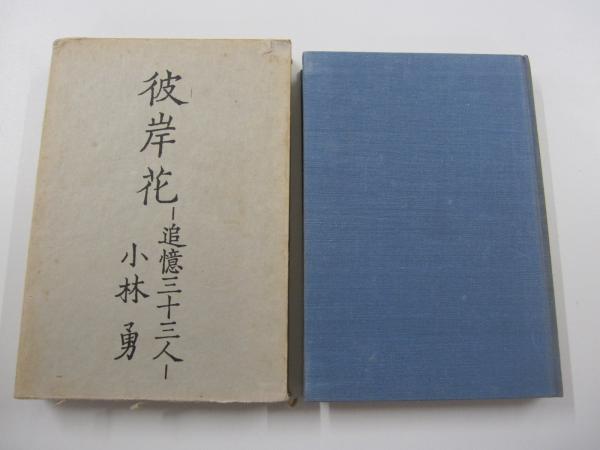 彼岸花
-追憶三十三人-
小林勇